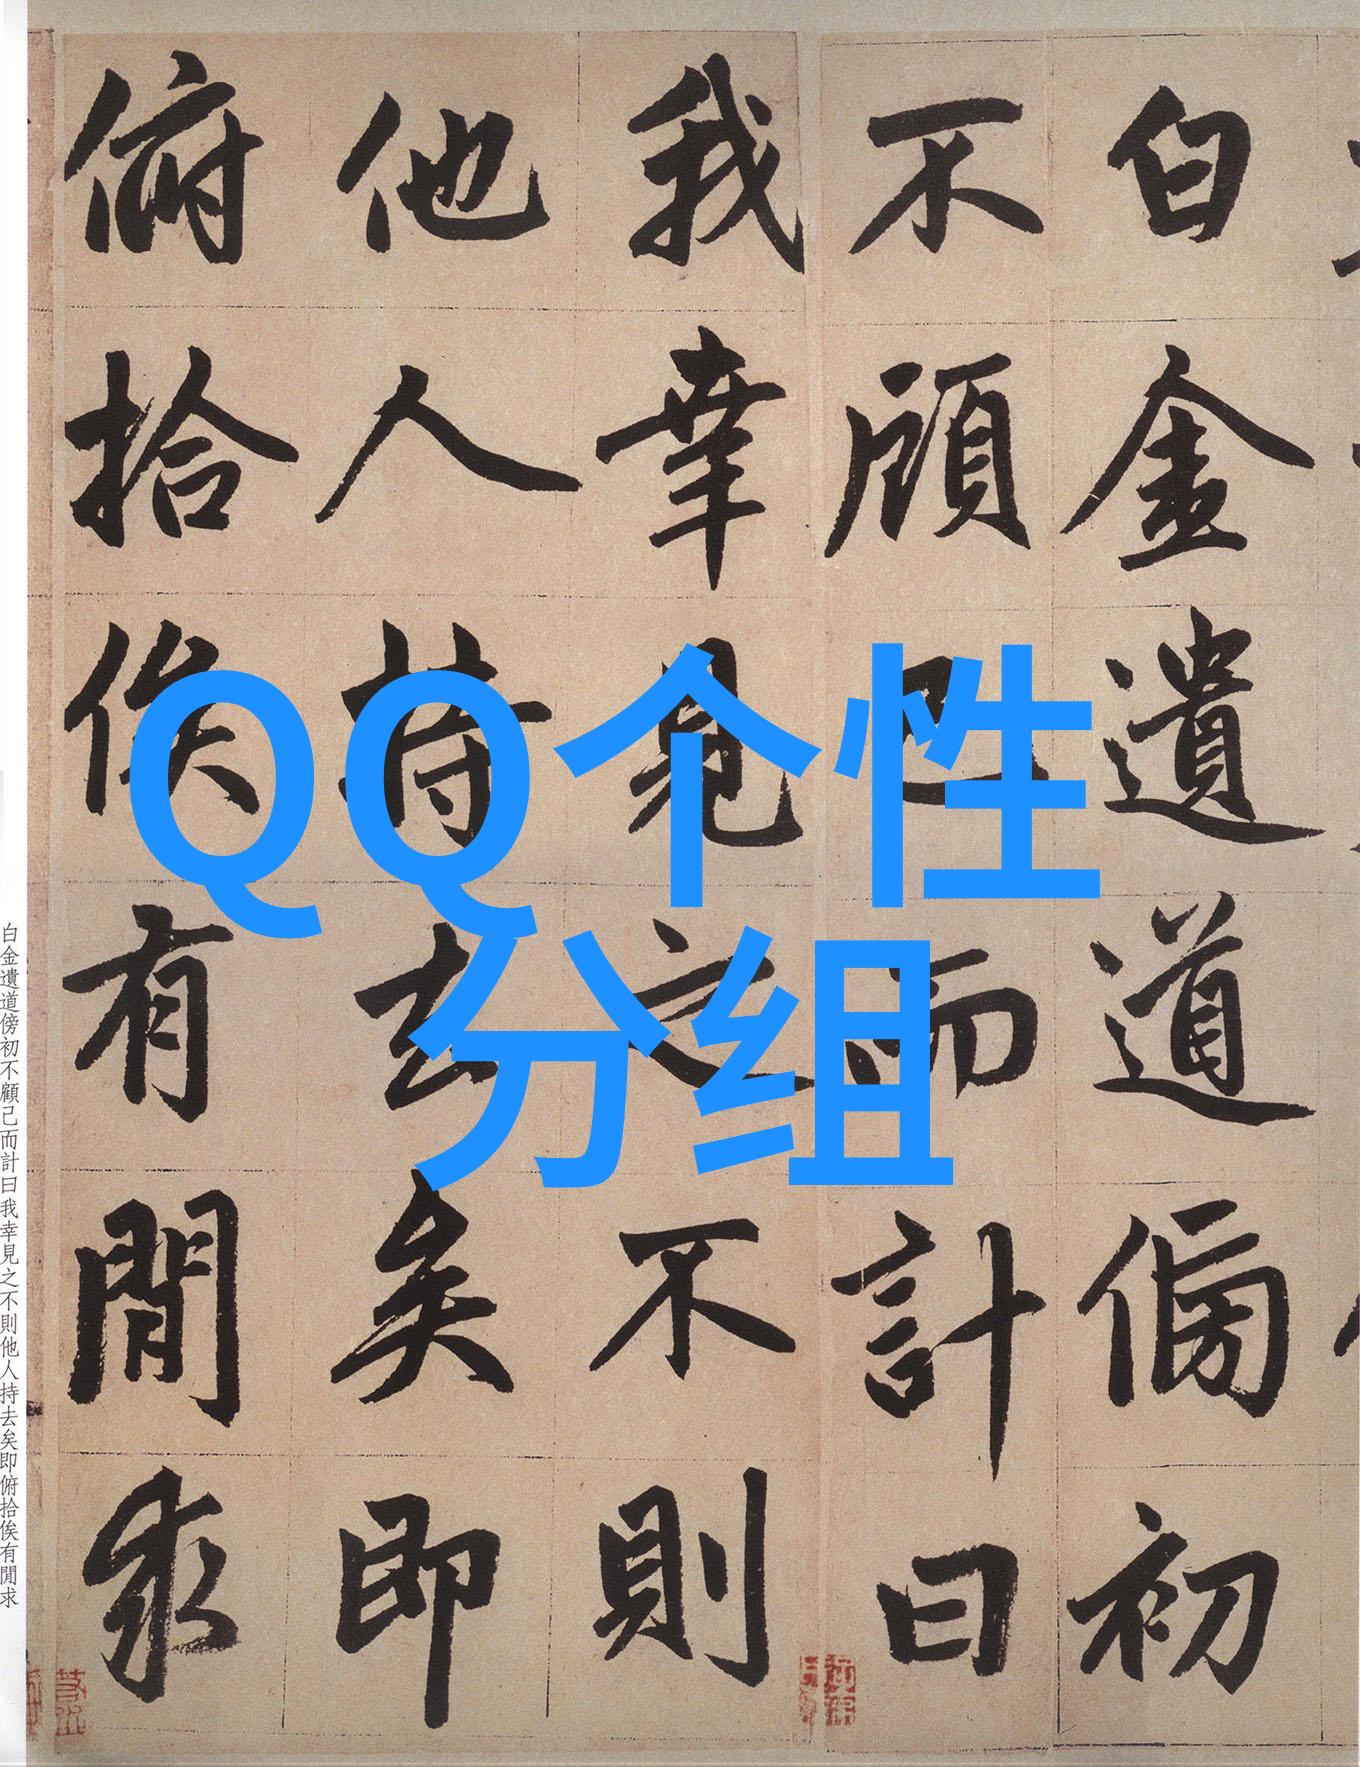 QQ个性
分组
白金遺道傍初
不顧己而計曰
我幸見之不則
他人持去矣即
俯拾俟有閒求
白金遺道傍初不顧己而計曰我幸見之不則他人持去矣即俯拾俟有閒求